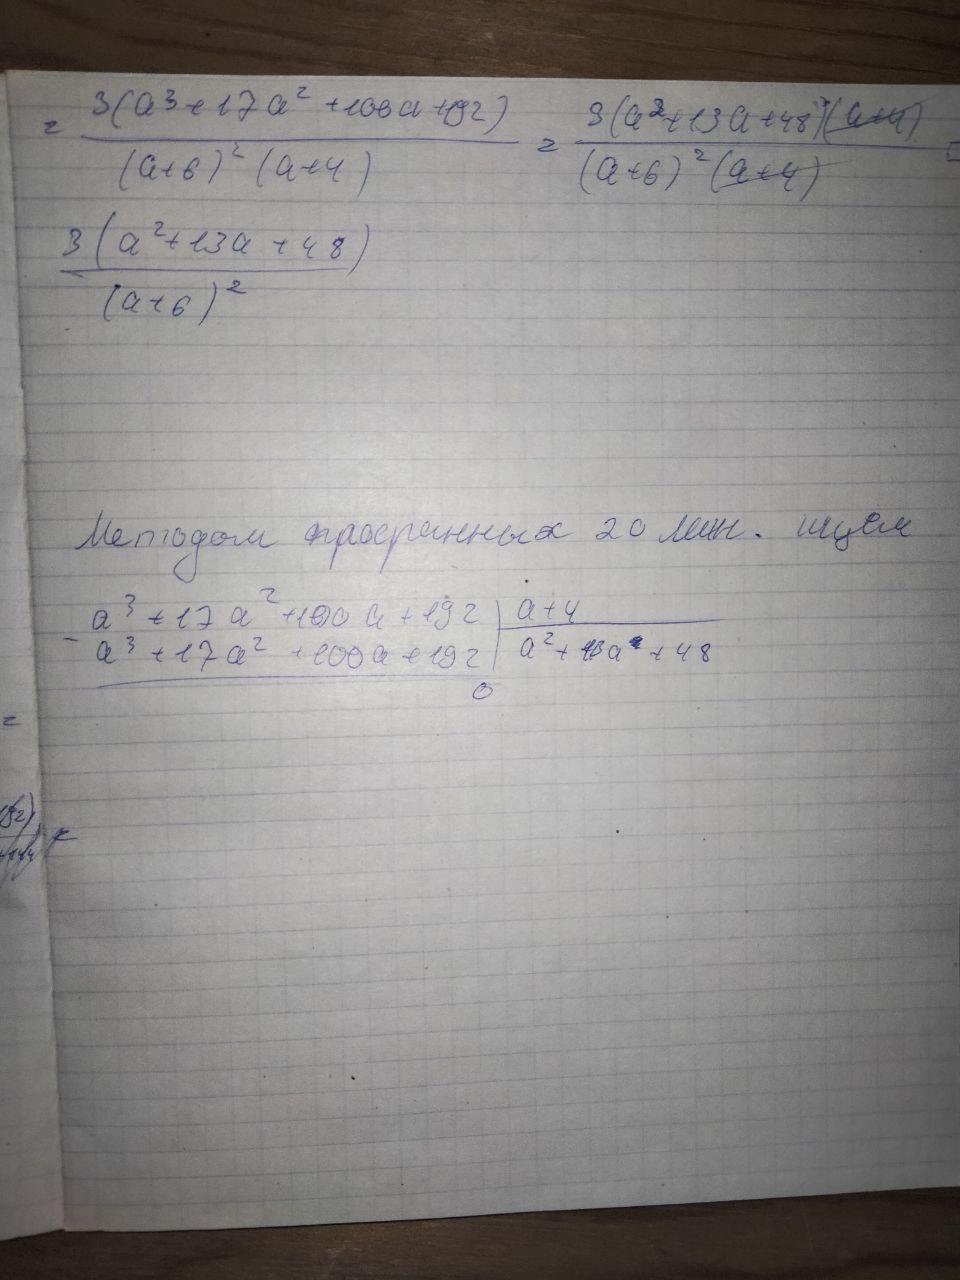 = 3(a³+17a²+100a+192) / (a+6)²(a+4) = 3(a²+13a+48)(a+4) / (a+6)²(a+4) =
3(a²+13a+48) / (a+6)²
Методом просранных 20 мин. ищем
a³+17a²+100a+192 | a+4
- a³+17a²+100a+192 | a²+13a+48
0
=